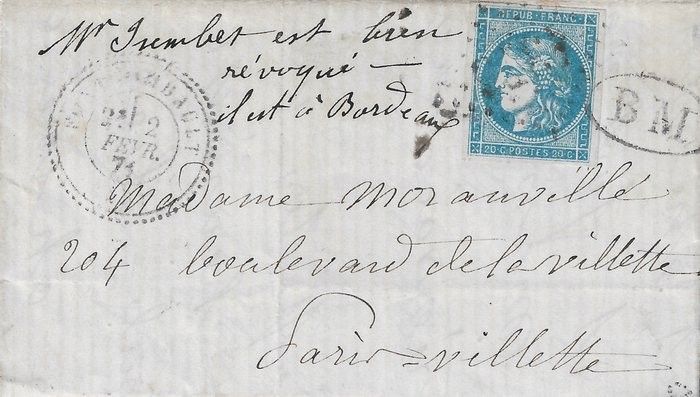 Mr Jumbet est bien
révoqué —
il est à Bordeaux
REPUB. FRANC.
20 C. POSTES 20 C.
BM
2
FEVR.
71
Madame Moranville
204 boulevard de la villette
Paris-villette